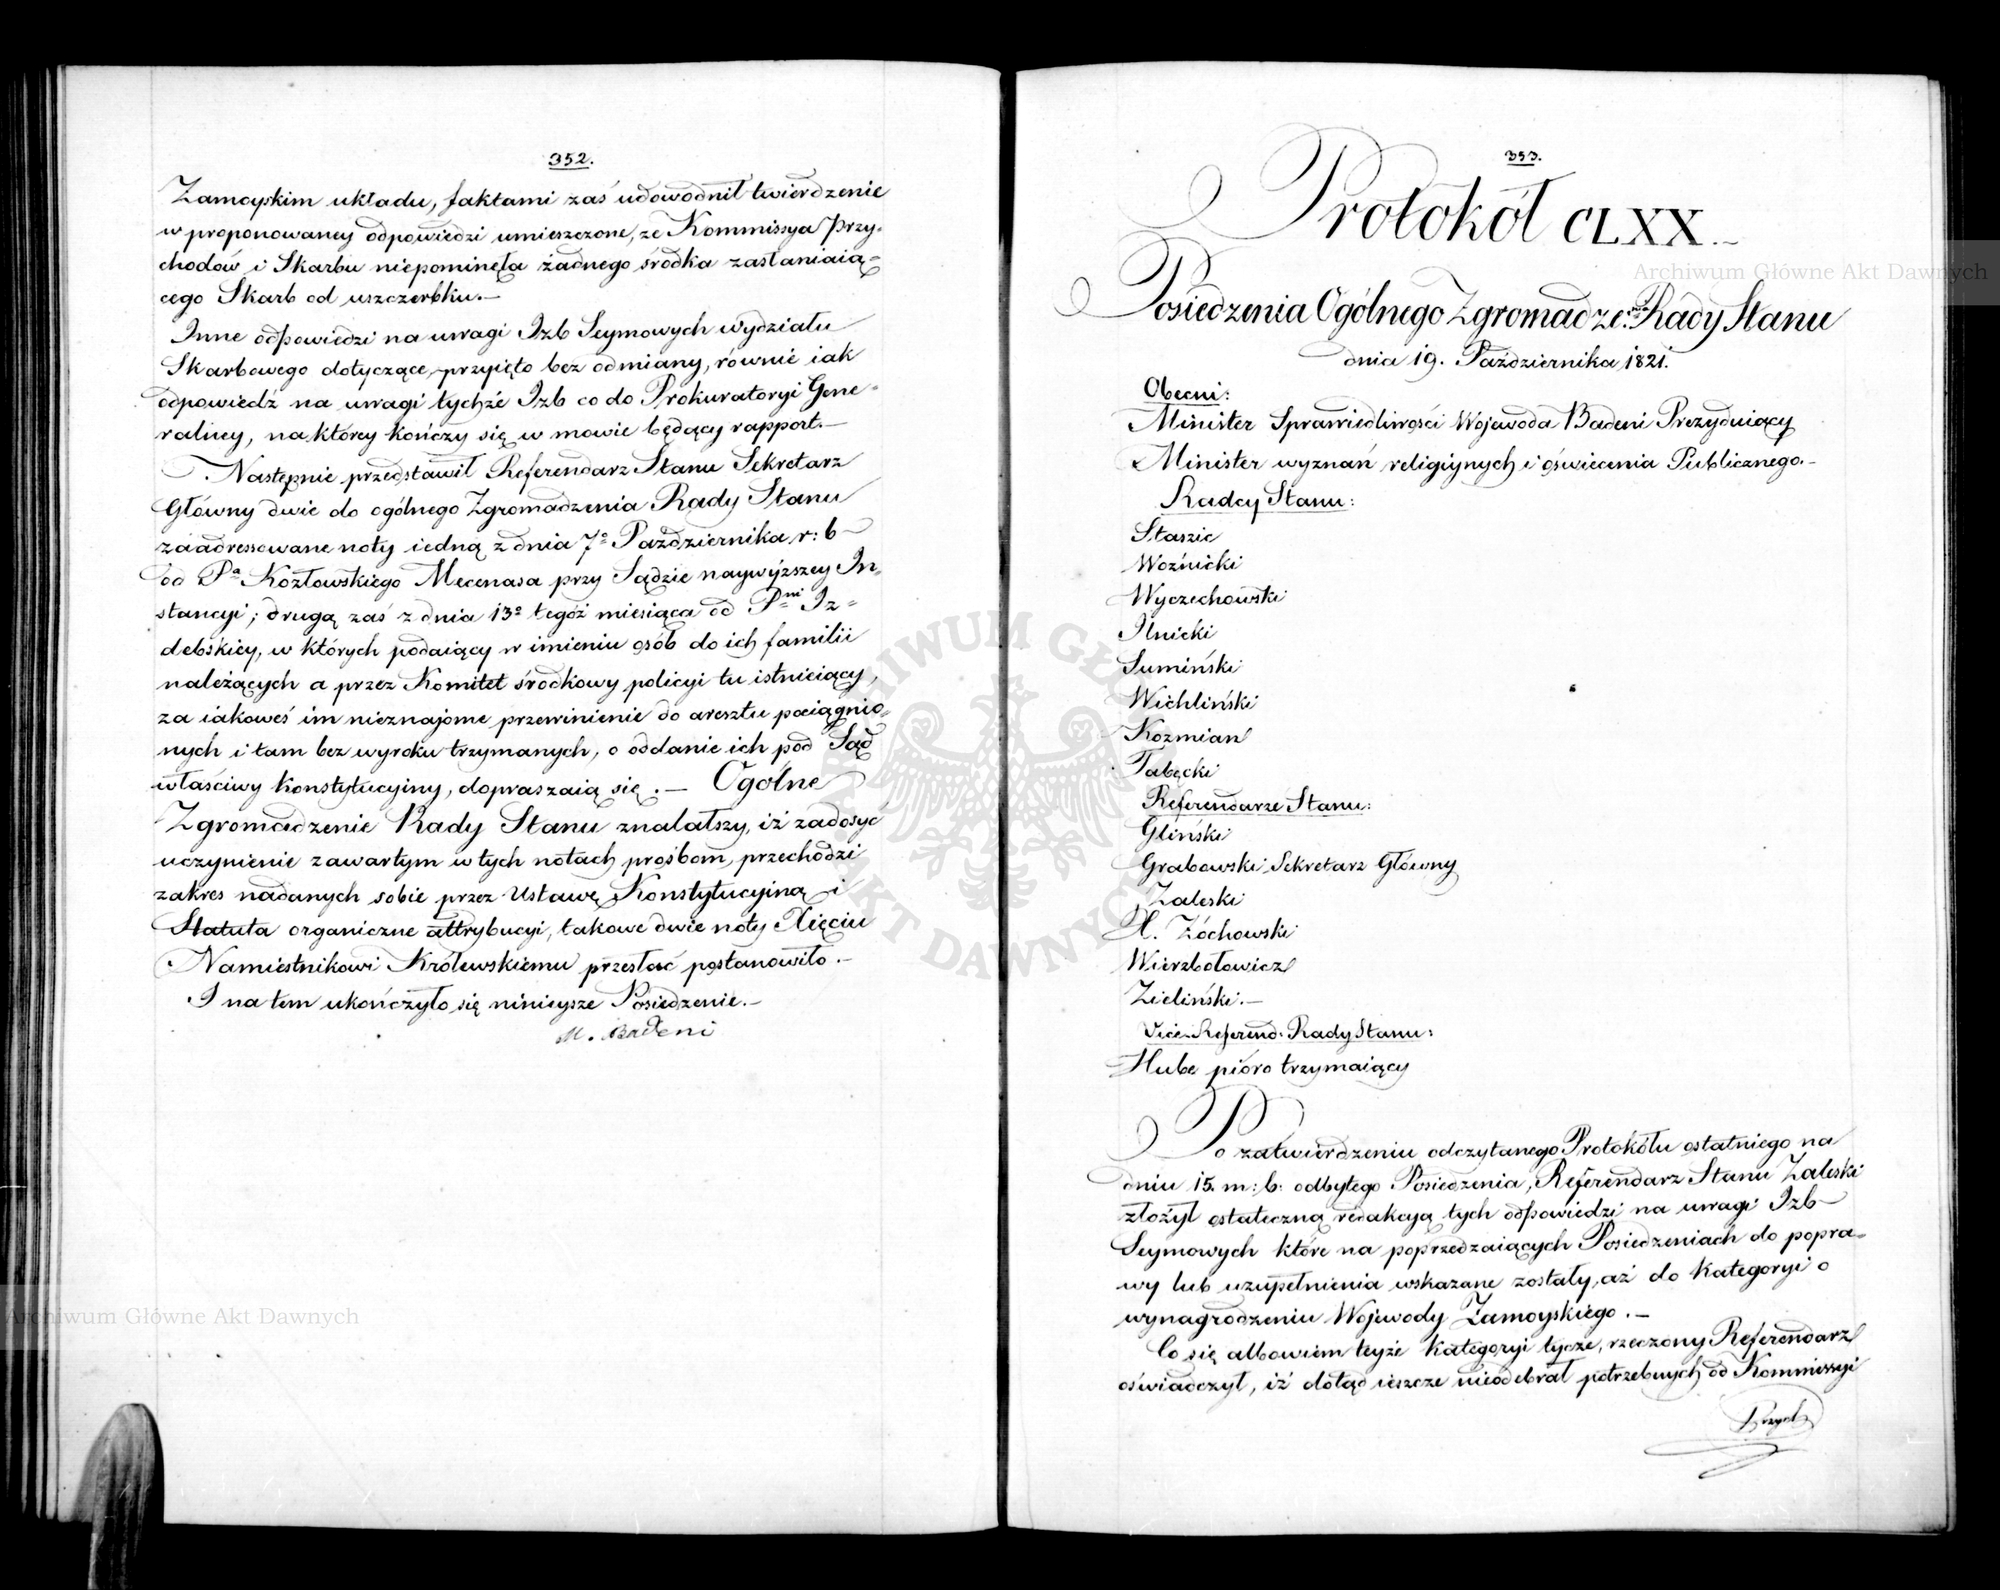 352.
Zamoyskim układu, faktami zaś udowodnił twierdzenie
w proponowaney odpowiedzi umieszczone, że Kommissya Przy-
chodów i Skarbu niepominęła żadnego środka zasłaniaią-
cego Skarb od uszczerbku.—
Inne odpowiedzi na uwagi Izb Seymowych wydziału
Skarbowego dotyczące, przyięto bez odmiany, równie iak
odpowiedź na uwagi tychże Izb co do Prokuratoryi Gene-
ralney, na którey kończy się w mowie będący rapport.—
Następnie przedstawił Referendarz Stanu Sekretarz
Główny dwie do ogólnego Zgromadzenia Rady Stanu
zaadressowane noty iedną z dnia 7º Października r: b
od Pª Kozłowskiego Mecenasa przy Sądzie naywyższey In-
stancyi; drugą zaś z dnia 13º tegóż miesiąca od Pni Iz-
debskiey, w których podaiący w imieniu osób do ich familii
należących a przez Komitet środkowy policyi tu istnieiący,
za iakoweś im nieznajome przewinienie do aresztu pociągnio-
nych i tam bez wyroku trzymanych, o oddanie ich pod Sąd
właściwy Konstytucyiny, dopraszaią się.— Ogólne
Zgromadzenie Rady Stanu znalałszy, iż zadosyć
uczynienie zawartym w tych notach prośbom, przechodzi
zakres nadanych sobie przez Ustawę Konstytucyiną i
Statuta organiczne attrybucyi, takowe dwie noty Xięciu
Namiestnikowi Królewskiemu przesłać postanowiło.—
I na tem ukończyło się ninieysze Posiedzenie.—
M. Badeni
353.
Protokół CLXX.
Posiedzenia Ogólnego Zgromadze:nia Rady Stanu
dnia 19. Października 1821.
Obecni:
Minister Sprawiedliwości Wojewoda Badeni Prezyduiący
Minister wyznań religiynych i oświecenia Publicznego.—
Radcy Stanu:
Staszic
Woźnicki
Wyczechowski
Ilnicki
Sumiński
Wichliński
Kozmian
Tabęcki
Referendarze Stanu:
Gliński
Grabowski Sekretarz Główny
Zaleski
X. Żóchowski
Wierzbołowicz
Zieliński.—
Vice-Referend: Rady Stanu:
Hube pióro trzymaiący
Po zatwierdzeniu odczytanego Protokółu ostatniego na
dniu 15. m: b: odbytego Posiedzenia, Referendarz Stanu Zaleski
złożył ostateczną redakcyą tych odpowiedzi na uwagi Izb
Seymowych które na poprzedzaiących Posiedzeniach do popra-
wy lub uzupełnienia wskazane zostały, aż do kategoryi o
wynagrodzeniu Wojewody Zamoyskiego.—
Co się albowiem teyże kategoryi tycze, rzeczony Referendarz
oświadczył, iż dotąd ieszcze nieodebrał potrzebnych od Kommissyi
Przych
Archiwum Główne Akt Dawnych
Archiwum Główne Akt Dawnych
ARCHIWUM GŁÓWNE AKT DAWNYCH